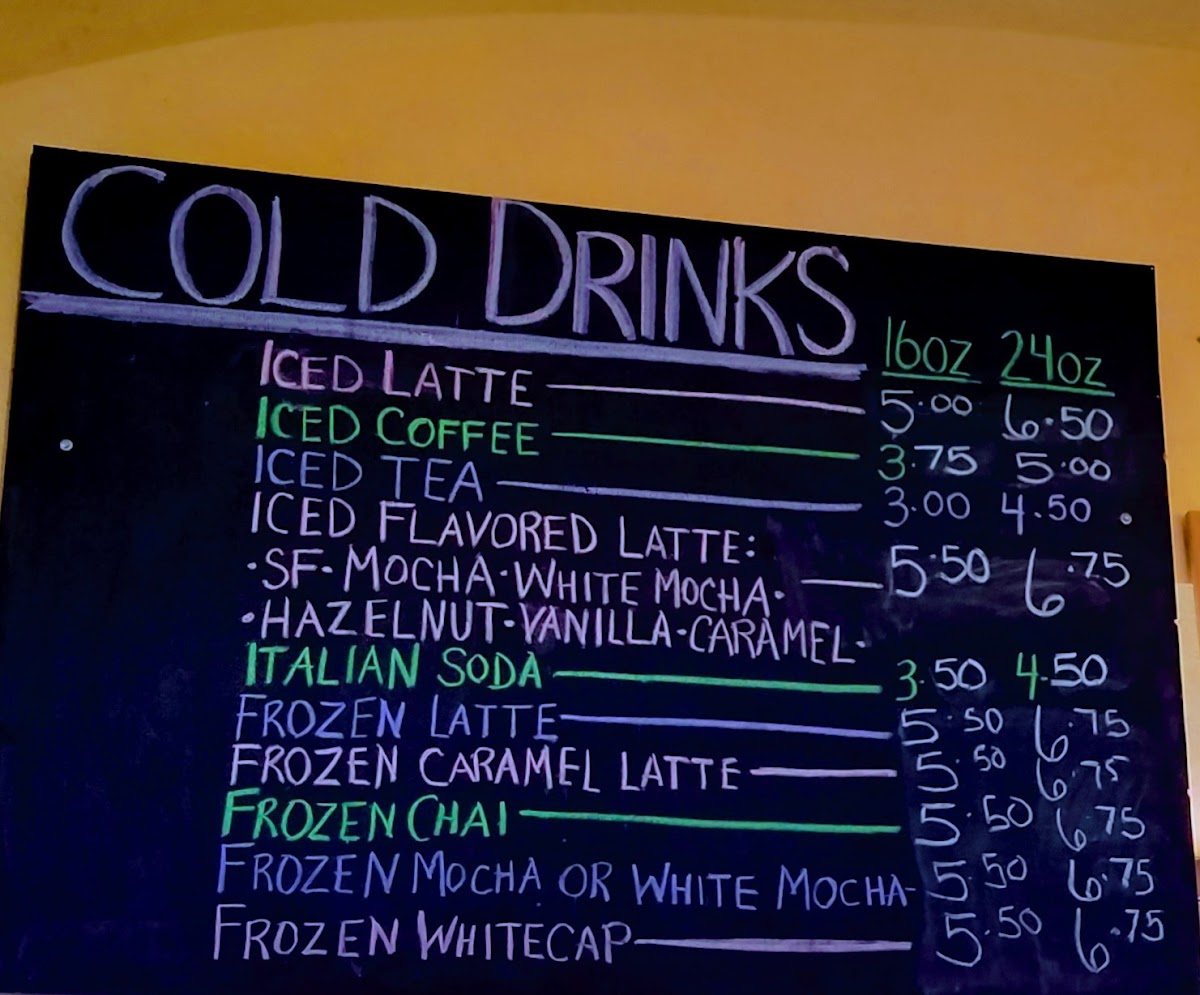 COLD DRINKS
16oz 24oz
ICED LATTE 5.00 6.50
ICED COFFEE 3.75 5.00
ICED TEA 3.00 4.50
ICED FLAVORED LATTE:
·SF·MOCHA·WHITE MOCHA· 5.50 6.75
·HAZELNUT·VANILLA·CARAMEL·
ITALIAN SODA 3.50 4.50
FROZEN LATTE 5.50 6.75
FROZEN CARAMEL LATTE 5.50 6.75
FROZEN CHAI 5.50 6.75
FROZEN MOCHA OR WHITE MOCHA- 5.50 6.75
FROZEN WHITECAP 5.50 6.75